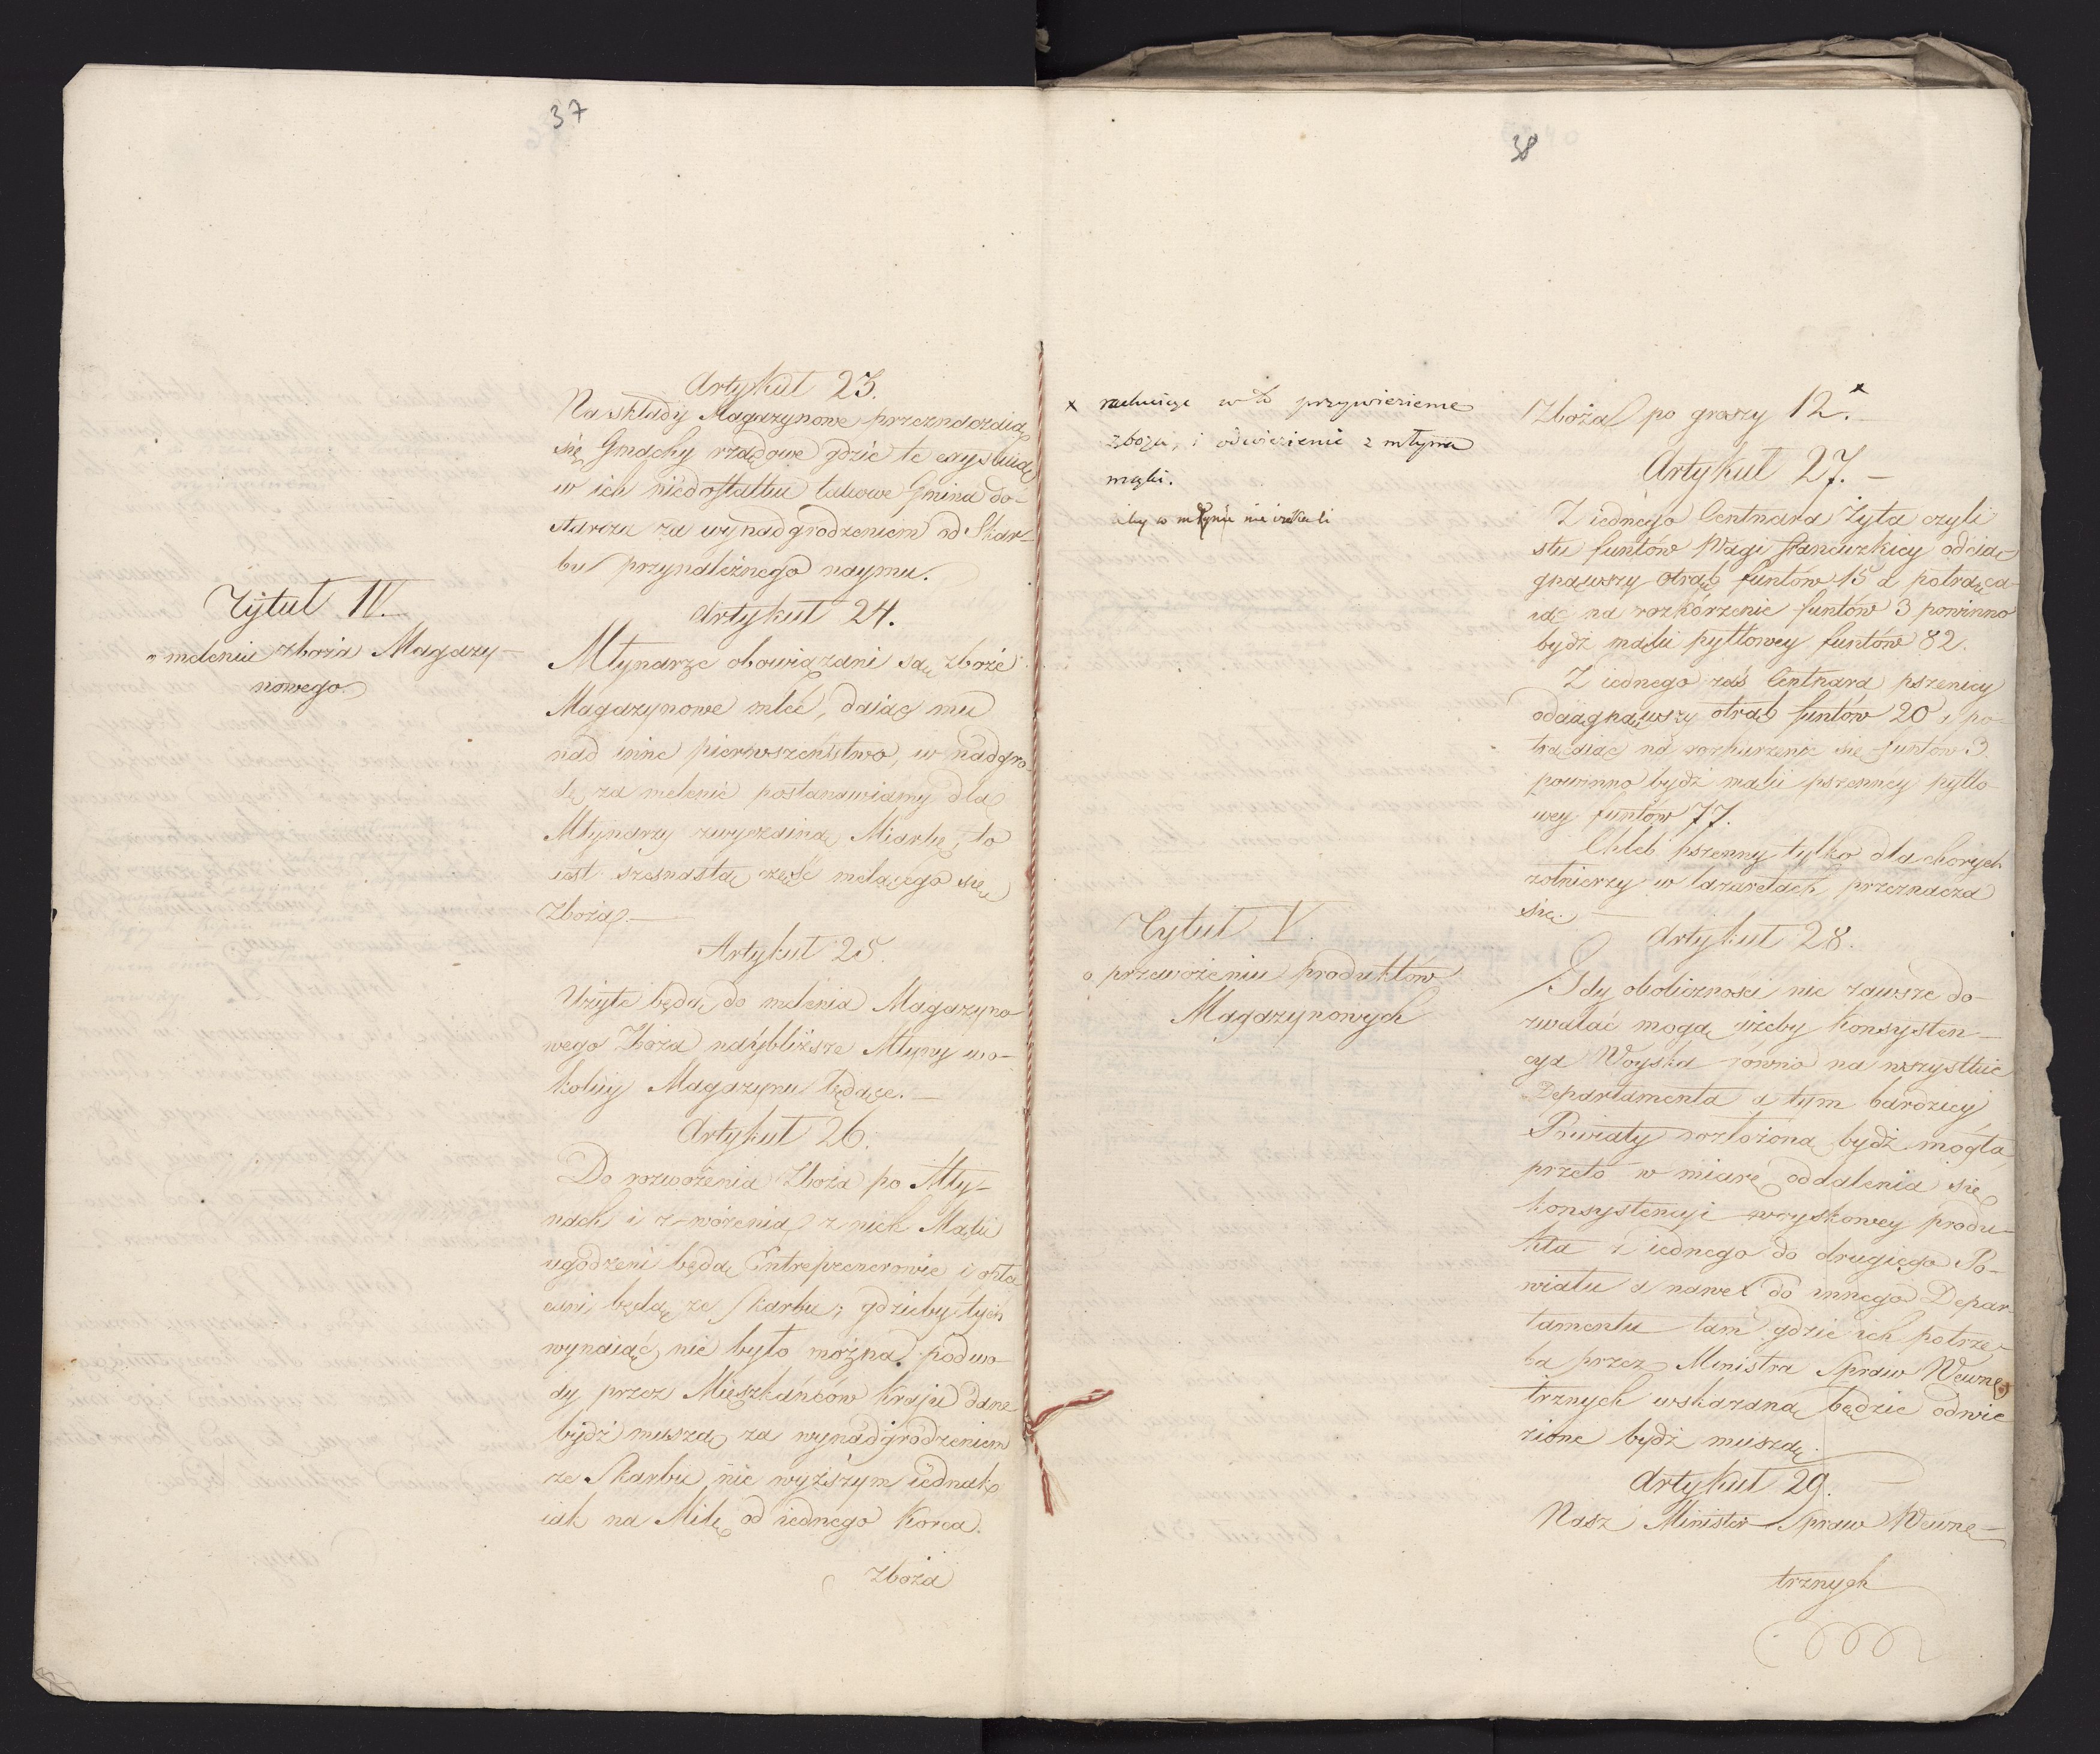 37
Artykuł 23.
Na składy Magazynowe przeznaczaią
się Gmachy rządowe gdzie te exystuią
w ich niedostatku takowe Gmina do-
starcza za wynadgrodzeniem od Skar-
bu przynależnego naymu.
Tytuł IV.
o meleniu zboża Magazy-
nowego
Artykuł 24.
Młynarze obowiązani są zboże
Magazynowe mleć, daiąc mu
nad inne pierwszeństwo, w nadgro-
dę za melenie postanawiamy dla
Młynarzy zwyczainą Miarkę, to
iest szesnastą część melącego się
Zboża.—
Artykuł 25.
Użyte będą do melenia Magazyno
wego Zboża nayblizsze Młyny wo-
kolicy Magazynu będące.—
Artykuł 26.
Do rozwożenia Zboża po Mły-
nach i zwożenia z nich Mąki
ugodzeni będą Entreprenerowie i opła
ceni będą ze Skarbu; gdzieby tych
wynaiąć nie było można podwo-
dy przez Mieszkańców Kraju dane
bydź muszą za wynadgrodzeniem
ze Skarbu nie wyższym iednak
iak na Milę od iednego Korca.
Zboża
38
x rachuiąc w to przywiezienie
zboża, i odwiezienie z młyna
mąki.
aby w młynie nie czekali
Zboża po groszy 12.x
Artykuł 27.—
Z iednego Centnara Żyta czyli
stu funtów Wagi francuzkiey odcią-
gnąwszy otrąb funtów 15 a potrąca-
iąc na rozkórzenie funtów 3 powinno
bydź mąki pytlowey funtów 82.
Z iednego zaś Centnara pszenicy
odciągnąwszy otrąb funtów 20, po-
trącaiąc na rozkurzenie się funtów 3
powinno bydź mąki pszenney pytlo-
wey funtów 77.
Chleb pszenny tylko dla chorych
żołnierzy w lazaretach przeznacza
się.—
Tytuł V.
o przewożeniu produktów
Magazynowych
Artykuł 28.
Gdy okoliczności nie zawsze do-
zwalać mogą iżeby konsysten-
cya Woyska równo na wszystkie
Departamenta a tym bardziey
Powiaty rozłożona bydź mogła,
przeto w miarę oddalenia się
konsystencyi woyskowey produ-
kta z iednego do drugiego Po-
wiatu a nawet do innego Depar-
tamentu tam gdzie ich potrze-
ba przez Ministra Spraw Wewnę
trznych wskazaną będzie odwie
zione bydź muszą.
Artykuł 29.
Nasz Minister Spraw Wewnę-
trznych